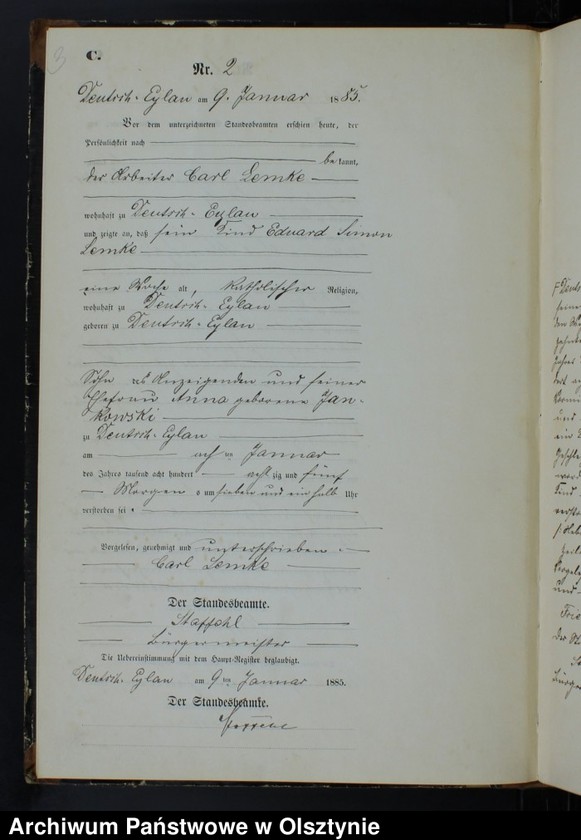 3
C.
Nr. 2
Deutsch-Eylau am 9. Januar 1885.
Vor dem unterzeichneten Standesbeamten erschien heute, der
Persönlichkeit nach
bekannt,
der Arbeiter Carl Lemke
wohnhaft zu Deutsch-Eylau
und zeigte an, daß sein Kind Eduard Simon
Lemke
eine Woche alt, katholischer Religion,
wohnhaft zu Deutsch-Eylau
geboren zu Deutsch-Eylau
Sohn des Anzeigenden und seiner
Ehefrau Anna geborene Jan-
kowski
zu Deutsch-Eylau
am acht ten Januar
des Jahres tausend acht hundert achtzig und fünf
Morgens um sieben und ein halb Uhr
verstorben sei.
Vorgelesen, genehmigt und unterschrieben.
Carl Lemke
Der Standesbeamte.
Bürgermeister
Die Uebereinstimmung mit dem Haupt-Register beglaubigt.
Deutsch-Eylau am 9ten Januar 1885.
Der Standesbeamte.
Archiwum Państwowe w Olsztynie